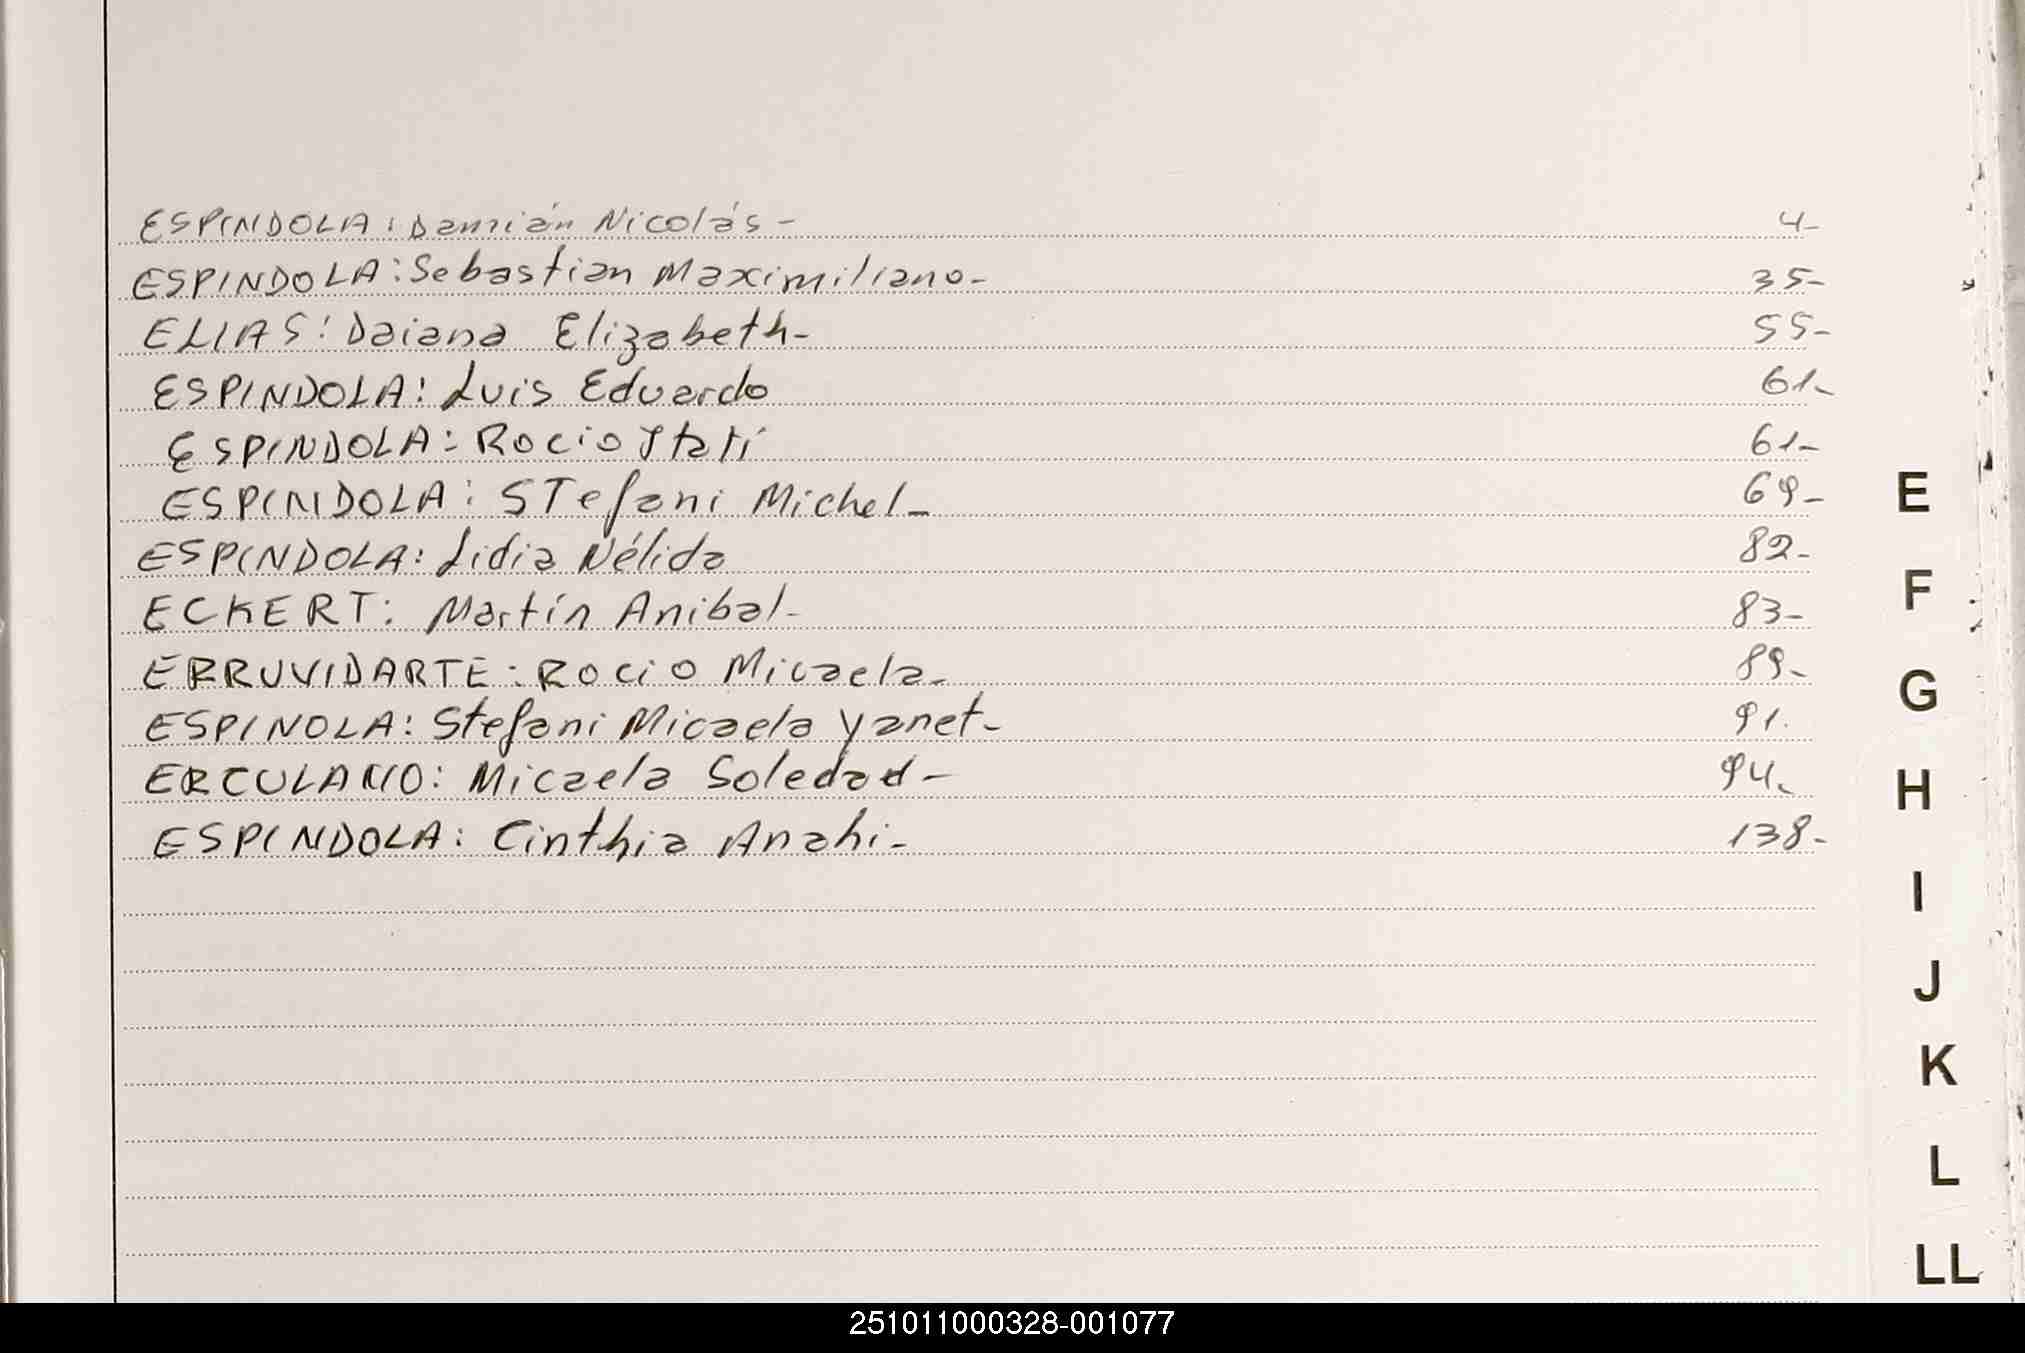 ESPINDOLA: Damián Nicolás- 4-
ESPINDOLA: Sebastian Maximiliano- 35-
ELIAS: Daiana Elizabeth- 55-
ESPINDOLA: Luis Eduardo 61-
ESPINDOLA: Rocio Itatí 61-
ESPINDOLA: STefani Michel- 69-
E
ESPINDOLA: Lidia Nélida 82-
ECKERT: Martín Anibal- 83-
F
ERRUVIDARTE: Rocio Micaela- 89-
G
ESPINOLA: Stefani Micaela Yanet- 91.
ERCULANO: Micaela Soledad- 94-
H
ESPINDOLA: Cinthia Anahi- 138-
I
J
K
L
LL
251011000328-001077